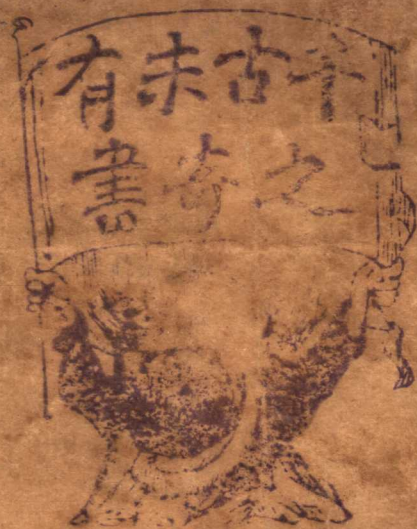 千古未有
之奇書